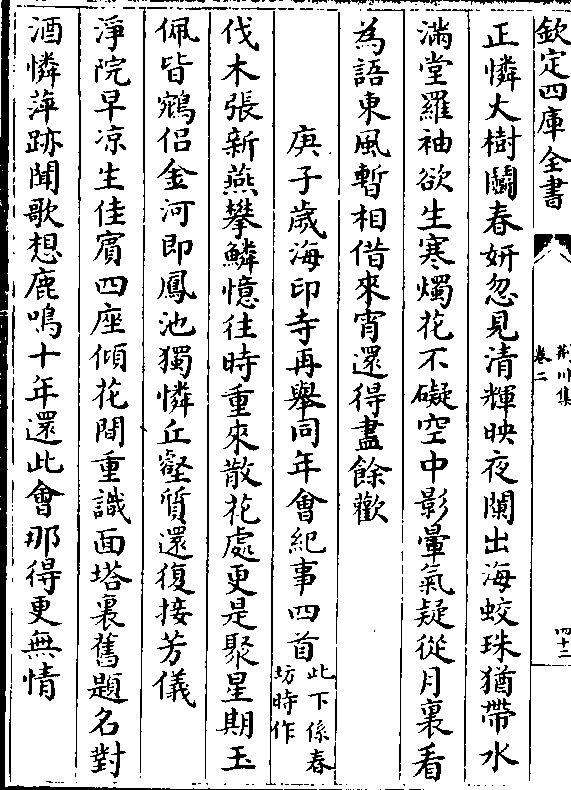 欽定四庫全書
荊川集
卷二
四十二
正憐火樹鬭春妍忽見清輝映夜闌出海蛟珠猶帶水
滿堂羅袖欲生寒燭花不礙空中影暈氣疑從月裏看
為語東風暫相借來宵還得盡餘歡
庚子歲海印寺再舉同年會紀事四首此下係春坊時作
伐木張新燕攀鱗憶往時重來散花處更是聚星期玉
佩皆鵷侣金河即鳳池獨憐丘壑質還復接芳儀
淨院早凉生佳賓四座傾花間重識面塔裏舊題名對
酒憐萍跡聞歌想鹿鳴十年還此會那得更無情